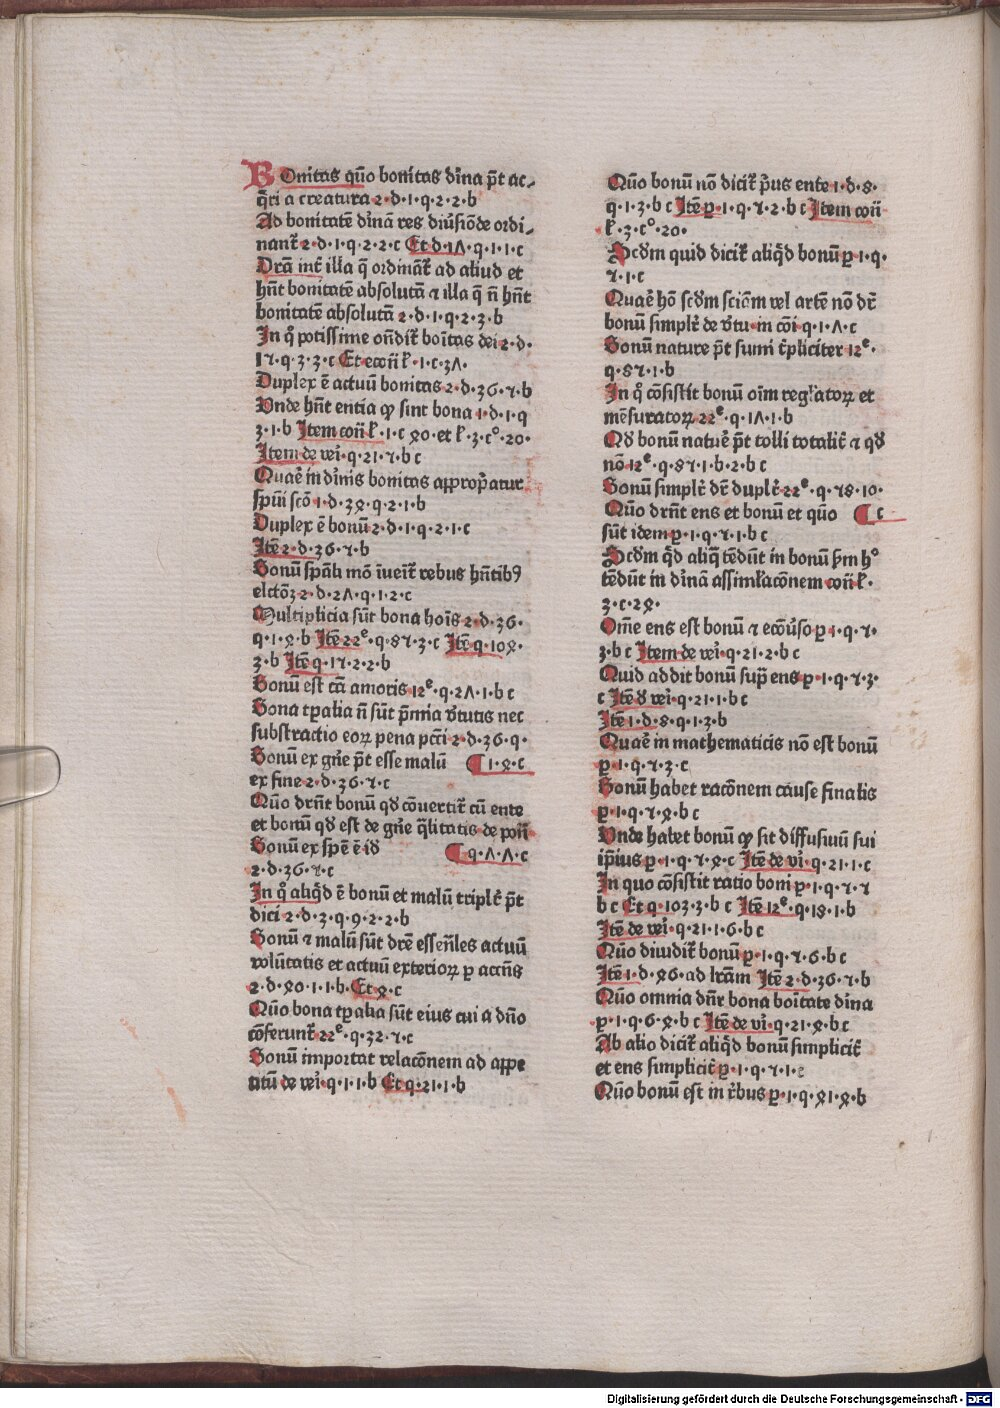 Bonitas quo̅ bonitas di̅na p̅t ac⸗
q̇ri a creatura 2·d·1·q·2·2·b
Ad bonitate̅ di̅na̅ res diũsio̅de ordi⸗
nant̅ 2·d·1·q·2·2·c Et d·1Λ·q·1·1·c
Dr̅a̅ int̅ illa q̅ ordina̅t̅ ad aliud et
hn̅t bonitate̅ absoluta̅ ⁊ illa q̅ n̅ hn̅t
bonitate̅ absoluta̅ 2·d·1·q·2·3·b
In q̊ potissime on̅dit̅ boi̅tas dei 2·d·
17·q·3·3·c Et eco̅n̅ l̅·1·c·3Λ·
Duplex e̅ actuu̅ bonitas 2·d·36·7·b
Vnde hn̅t entia ꝙ sint bona 1·d·1·q
3·1·b Item con̅ l̅·1·c ꝝ0·et l̅·3·c°·20·
Item de vei̅·q·21·7·b c
Quae̅ in di̅nis bonitas appropr̅atur
spu̅i sco̅ 1·d·3ꝝ·q·2·1·b
Duplex e̅ bonu̅ 2·d·1·q·2·1·c
Ite̅ 2·d·36·7·b
Bonu̅ spa̅li mo̅ i̅ueit̅ rebus hn̅tibꝰ
elcto̅ꝫ 2·d·2Λ·q·1·2·c
Multiplicia su̅t bona hoi̅s 2·d·36·
q·1·ꝝ·b Ite̅ 22ᵉ·q·87·3·c Ite̅ q·10ꝝ·
3·b Ite̅ q·17·2·2·b
Bonu̅ est ca̅ amoris 12ᵉ·q·2Λ·1·b c
Bona tꝑalia n̅ su̅t p̅mia v̅tutis nec
substractio eoꝝ pena pct̅i 2·d·36·q·
Bonu̅ ex gn̅e p̅t esse malu̅ ¶1·ꝝ·c
ex fine 2·d·36·7·c
Quo̅ drn̅t bonu̅ qđ co̅uertit̅ cu̅ ente
et bonu̅ qđ est de gn̅e q̅litatis de pon̅
Bonu̅ ex spe̅ e̅ i̅đ ¶q·Λ·Λ·c
2·d·36·7·c
In q̊ aliq̊d e̅ bonu̅ et malu̅ triplr̅ p̅t
dici 2·d·3·q·9·2·2·b
Bonu̅ ⁊ malu̅ su̅t dr̅e essen̅les actuu̅
volu̅tatis et actuu̅ exterioꝝ ꝑ accn̅s
2·d·ꝝ0·1·1·b· Et ꝝ·c
Quo̅ bona tꝑalia su̅t eius cui a dn̅o
co̅ferunt̅ 22ᵉ·q·32·7·c
Bonu̅ importat relaco̅nem ad appe
titu̅ de vei̅·q·1·1·b Et q·21·1·b
Quo̅ bonu̅ no̅ dicit̅ p̅us ente 1·d·8·
q·1·3·b c Ite̅ ꝑ·1·q·7·2·b c Item con̅
l̅·3·c°·20·
Scđm quid dicit̅ aliq̊d bonu̅ ꝑ 1·q·
7·1·c
Quae̅ ho̅ scđm scia̅m vel arte̅ no̅ dr̅
bonu̅ simplr̅ de v̅tu·in co̅i q·1·Λ·c
Bonu̅ nature p̅t sumi t̅pliciter 12ᵉ·
q·87·1·b
In q̊ co̅sistit bonu̅ oi̅m regl̅atoꝝ et
me̅suratoꝝ 22ᵉ·q·1Λ·1·b
Qđ bonu̅ natue̅ p̅t tolli totalit̅ ⁊ qđ
no̅ 12ᵉ·q·87·1·b·2·b c
Bonu̅ simplr̅ dr̅ duplr̅ 22ᵉ·q·78·10·
Quo̅ drn̅t ens et bonu̅ et quo̅ ¶c
su̅t idem ꝑ·1·q·7·1·b c
Scđm q̊d aliq̅ te̅du̅t in bonu̅ s̅m h°
te̅du̅t in di̅na̅ assiml̅aco̅nem con̅ l̅·
3·c·2ꝝ·
Om̅e ens est bonu̅ ⁊ eco̅ũso ꝑ·1·q·7·
3·b c Item de vei̅·q·21·2·b c
Quid addit bonu̅ sup̅ ens ꝑ·1·q·7·3·
c Ite̅ đ vei̅·q·21·1·b c
Ite̅ 1·d·8·q·1·3·b
Quae̅ in mathematicis no̅ est bonu̅
ꝑ·1·q·7·3·c
Bonu̅ habet raco̅nem cause finalis
ꝑ·1·q·7·ꝝ·b c
Vnde habet bonu̅ ꝙ sit diffusiuu̅ sui
ip̅ius ꝑ·1·q·7·ꝝ·c Ite̅ de vi̅·q·21·1·c
In quo co̅sistit ratio boni ꝑ·1·q·7·7
b c Et q·103·3·b c Ite̅ 12ᵉ·q·18·1·b
Ite̅ de vei̅·q·21·1·6·b c
Quo̅ diuidit̅ bonu̅ ꝑ·1·q·7·6·b c
Ite̅ 1·d·ꝝ6·ad lr̅am Ite̅ 2·d·36·7·b
Quo̅ omnia dn̅r bona boi̅tate di̅na
ꝑ·1·q·6·ꝝ·b c Ite̅ de vi̅·q·21·ꝝ·b c
Ab alio dicit̅ aliq̊d bonu̅ simplicit̅
et ens simplicit̅ ꝑ·1·q·7·1·c
Quo̅ bonu̅ est in r̅bus ꝑ·1·q·ꝝ1·ꝝ·b
Digitalisierung gefördert durch die Deutsche Forschungsgemeinschaft - DFG